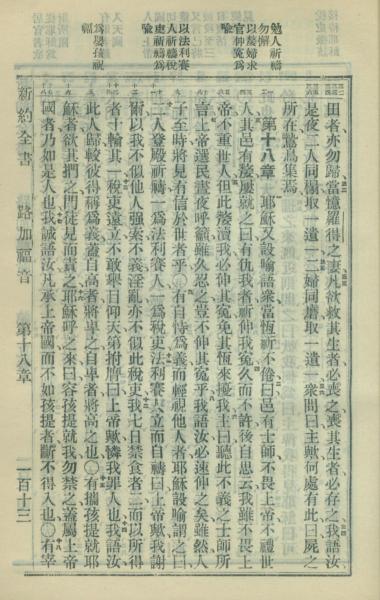 勉人祈禱
勿懈
以嫠婦求
官伸冤爲
喻
以法利賽
人祈禱稅
吏祈禱爲
喻
爲嬰孩祝
福
田者亦勿歸當憶羅得之妻凡欲救其生者必喪之喪其生者必存之我語汝
是夜二人同榻取一遺一二婦同磨取一遺一衆問曰主歟何處有此曰屍之
所在鷲鳥集焉
第十八章 耶穌又設喻語衆當恆祈不倦曰邑有士師不畏上帝不禮世
人其邑有嫠屢就之曰有仇我者祈伸我冤久而不許後自思云我雖不畏上
帝不重世人但此嫠瀆我必伸其冤免其恆來擾我主曰聽此不義之士師所
言上帝選民晝夜呼籲雖久忍之豈不伸其冤乎我語汝必速伸之矣雖然人
子至時將見有信於世者乎○有自恃爲義而輕視他人者耶穌設喻謂之曰
二人登殿祈禱一爲法利賽人一爲稅吏法利賽人立而自禱曰上帝歟我謝
爾以我不似他人強索不義淫亂亦不似此稅吏我七日禁食者二而以所得
者十輸其一稅吏遠立不敢舉目仰天第拊膺曰上帝歟憐我罪人也我語汝
此人歸較彼得稱爲義蓋自高者將卑之自卑者將高之也○有攜孩提就耶
穌者欲其捫之門徒見而責之耶穌呼之來曰容孩提就我勿禁之蓋屬上帝
國者乃如是人也我誠語汝凡承上帝國而不如孩提者斷不得入也○有宰
新約全書 路加福音 第十八章 一百十三